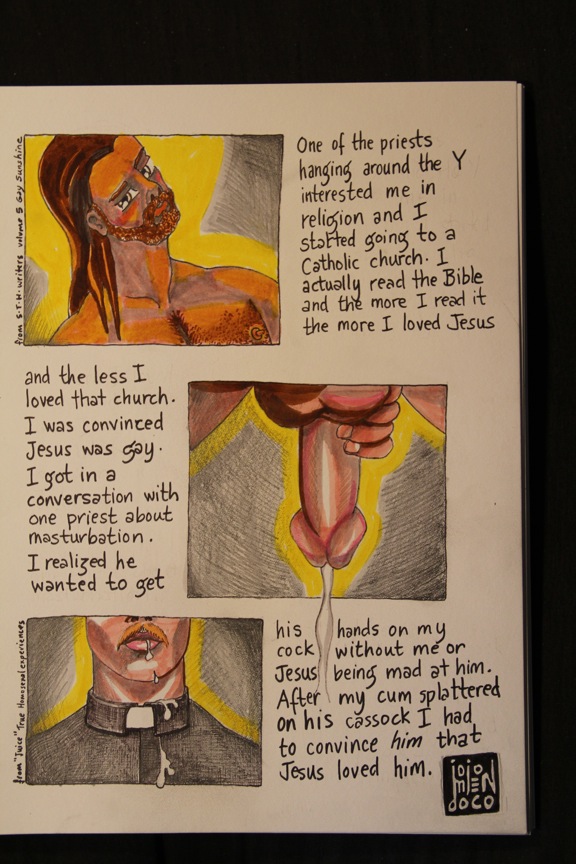 from S.T.H. writers volume 5 Gay Sunshine
One of the priests
hanging around the Y
interested me in
religion and I
started going to a
Catholic church. I
actually read the Bible
and the more I read it
the more I loved Jesus
and the less I
loved that church.
I was convinced
Jesus was gay.
I got in a
conversation with
one priest about
masturbation.
I realized he
wanted to get
from "Juice" True Homosexual experiences
his hands on my
cock without me or
Jesus being mad at him.
After my cum splattered
on his cassock I had
to convince him that
Jesus loved him.